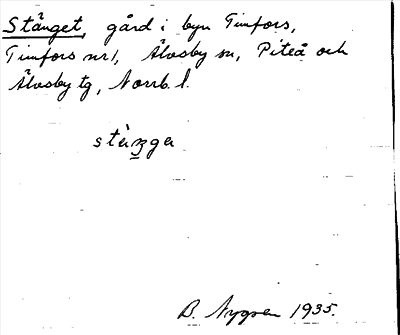 Stånget, gård i byn Timfors,
Timfors nr 1, Älvsby sn, Piteå och
Älvsby tg, Norrb. l.
stànga
B. Nygren 1935.